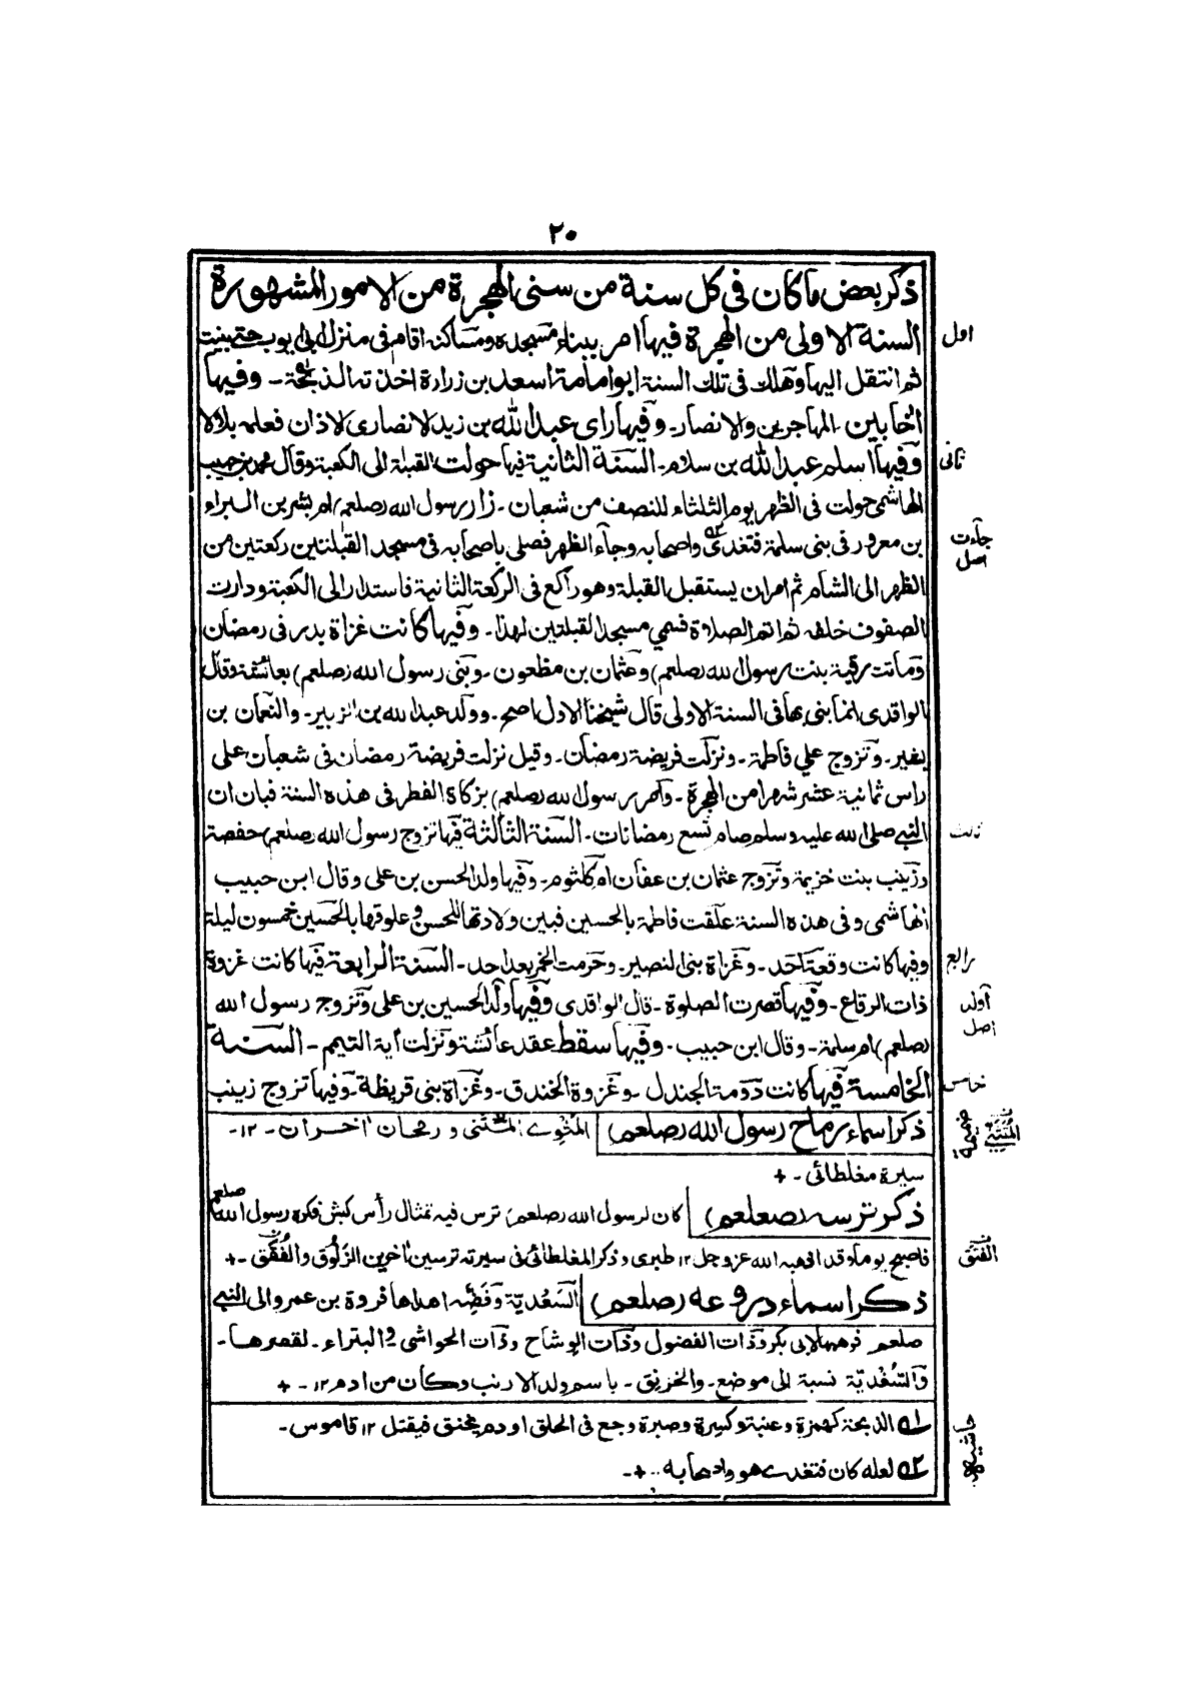 ٢٠
ذكر بعض ما كان فى كل سنة من سنى الهجرة من الامور المشهورة
السنة الاولى من الهجرة فيها امر ببناء مسجده ومساكنه اقام فى منزل ابى ايوب حتى بنيت
اول
ثم انتقل اليها وهلك فى تلك السنة ابو امامة اسعد بن زرارة اخذته الذبحة - وفيها
اخا بين المهاجرين والانصار - وفيها راى عبد الله بن زيد الانصارى الاذان فعلمه بلالا
وفيها اسلم عبد الله بن سلام - السنة الثانية فيها حولت القبلة الى الكعبة وقال محمد بن حبيب
ثانى
الهاشمى حولت فى الظهر يوم الثلثاء للنصف من شعبان - زار رسول الله (صلعم) ام بشر بن البراء
بن معرور فى بنى سلمة فتغدى ٥٢ واصحابه وجآء الظهر فصلى باصحابه فى مسجد القبلتين ركعتين من
جآءت
اصل
الظهر الى الشام ثم امر ان يستقبل القبلة وهو راكع فى الركعة الثانية فاستدار الى الكعبة ودارت
الصفوف خلفه ثم اتم الصلاة فسمي مسجد القبلتين لهذا - وفيها كانت غزاة بدر فى رمضان
وماتت رقية بنت رسول الله (صلعم) وعثمان بن مظعون - وبنى رسول الله (صلعم) بعائشة وقال
الواقدى انما بنى بها فى السنة الاولى قال شيخنا الاول اصح - وولد عبد الله بن الزبير - والنعمان بن
بشير - وتزوج علي فاطمة - ونزلت فريضة رمضان - وقيل نزلت فريضة رمضان فى شعبان على
راس ثمانية عشر شهرا من الهجرة - وامر رسول الله (صلعم) بزكاة الفطر فى هذه السنة فبان ان
النبي صلى الله عليه وسلم صام تسع رمضانات - السنة الثالثة فيها تزوج رسول الله (صلعم) حفصة
ثالث
وزينب بنت خزيمة وتزوج عثمان بن عفان ام كلثوم - وفيها ولد الحسن بن على وقال ابن حبيب
الهاشمى وفى هذه السنة علقت فاطمة بالحسين فبين ولادتها للحسن وعلوقها بالحسين خمسون ليلة
وفيها كانت وقعة احد - وغزاة بنى النصير - وحرمت الخمر بعد احد - السنة الرابعة فيها كانت غزوة
رابع
ذات الرقاع - وفيها قصرت الصلوة - قال الواقدى وفيها ولد الحسين بن على وتزوج رسول الله
اصل
(صلعم) ام سلمة - وقال ابن حبيب - وفيها سقط عقد عائشة ونزلت آية التيمم - السنة
الخامسة فيها كانت دومة الجندل - وغزوة الخندق - وغزاة بنى قريظة - وفيها تزوج زينب
خامس
ذكر اسماء رماح رسول الله (صلعم) المثوى المثنى و رمحان اخران - ١٢ -
ضميمة
سيرة مغلطائى - +
ذكر ترسه (صلعم) كان لرسول الله (صلعم) ترس فيه تمثال رأس كبش فكره رسول الله صلعم
فاصبح يوما وقد اذهبه الله عز وجل ١٢ طبرى وذكر المغلطائى فى سيرته ترسين اخرين الزلوق والفتق - +
الفتق
ذكر اسماء دروعه (صلعم) السعدية وفضه اهداها فروة بن عمرو الى النبي
صلعم فوهبها لابى بكر وذات الفضول وذات الوشاح وذات الحواشى والبتراء - لقصرها -
والسغدية نسبة الى موضع - والخرنق - باسم ولد الارنب وكان من ادم ١٢ - +
٥١ الذبحة كهمزة وعنبة وكسرة وصبرة وجع فى الحلق او دم يخنق فيقتل ١٢ قاموس -
حاشيه
٥٢ لعله كان فتغدے هو واصحابه - + -